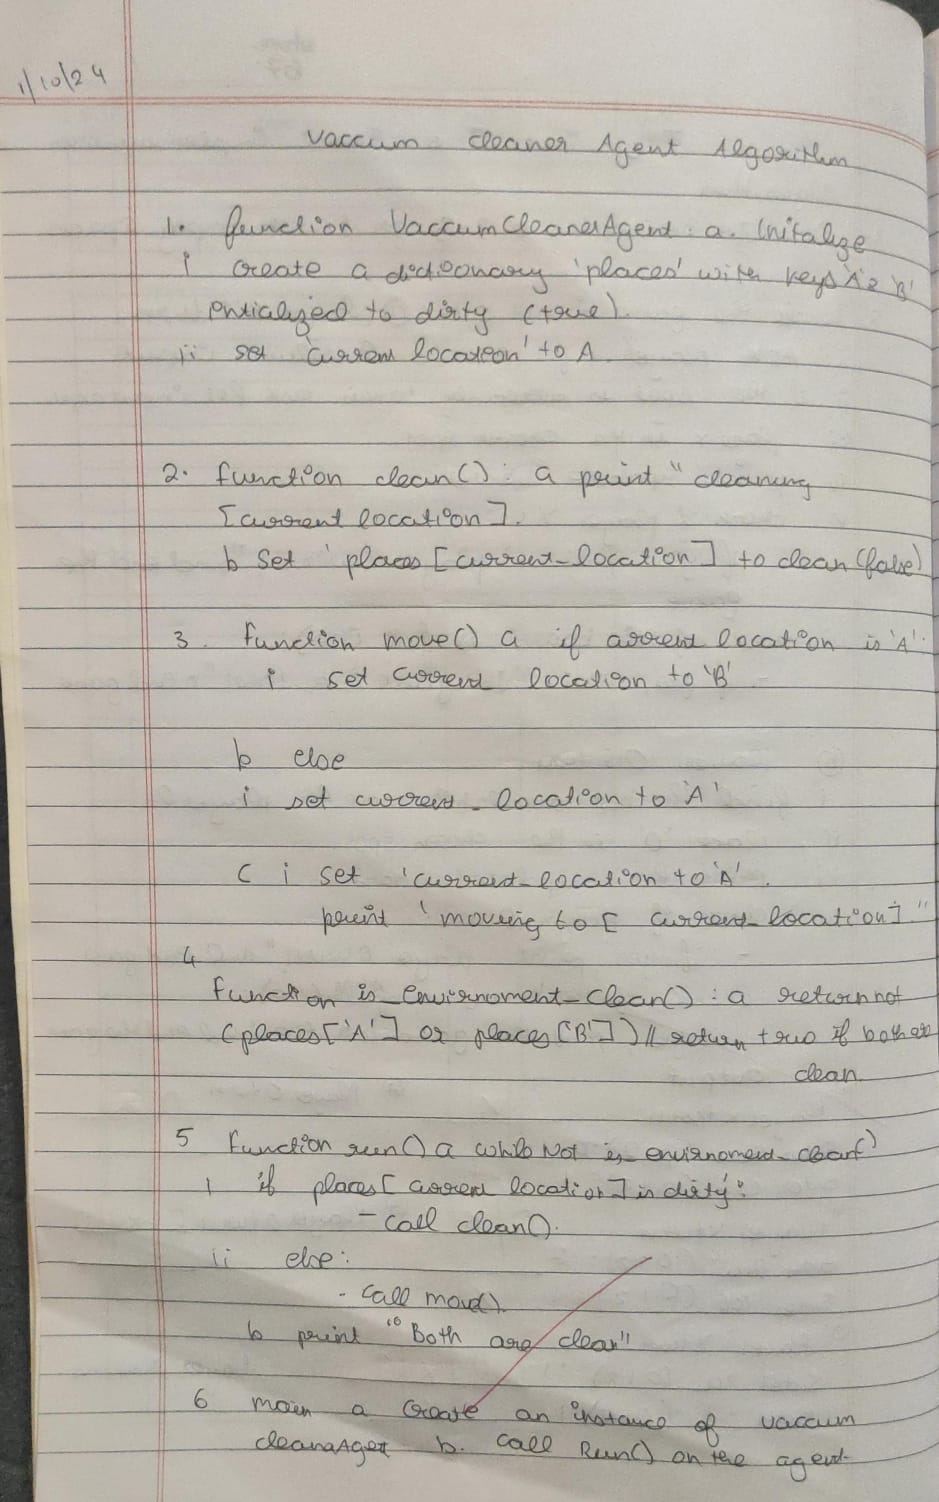 1/10/24
Vaccum cleaner Agent Algorithm
1. function VaccumCleanerAgent : a. Initalize
i create a dictionary 'places' with keys 'A' & 'B'
intialized to dirty (true)
ii set 'current location' to A
2. function clean() : a print "cleaning
[current location].
b Set 'places [current_location] to clean (false)
3. function move() a if current location is 'A'.
i set current location to 'B'
b else
i set current_location to 'A'
c i set 'current_location to 'A'.
print 'moving to [current_location]."
4
function is_envirnoment_clean() : a return not
(places['A'] or places['B']) // return true if both are
clean
5 function run() a while Not is_envirnoment_clean()
i if places[current location] is dirty:
- call clean().
ii else:
- call move().
b print "Both are clean"
6 main a Create an instance of vaccum
cleanerAgent b. call Run() on the agent.